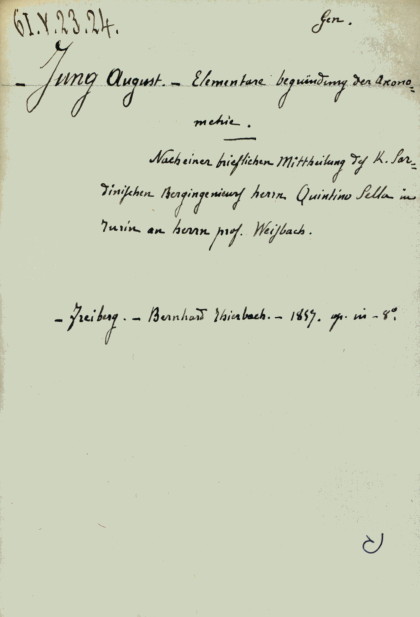 61.V.23.24.
Gen.
– Jung August. – Elementare begründung der Axono=
metrie.
Nach einer brieflichen Mittheilung deß K. Sar=
dinischen Bergingenieurs herrn Quintino Sella in
Turin an herrn prof. Weißbach.
– Freiberg. – Bernhard – 1857. op. in – 8º.